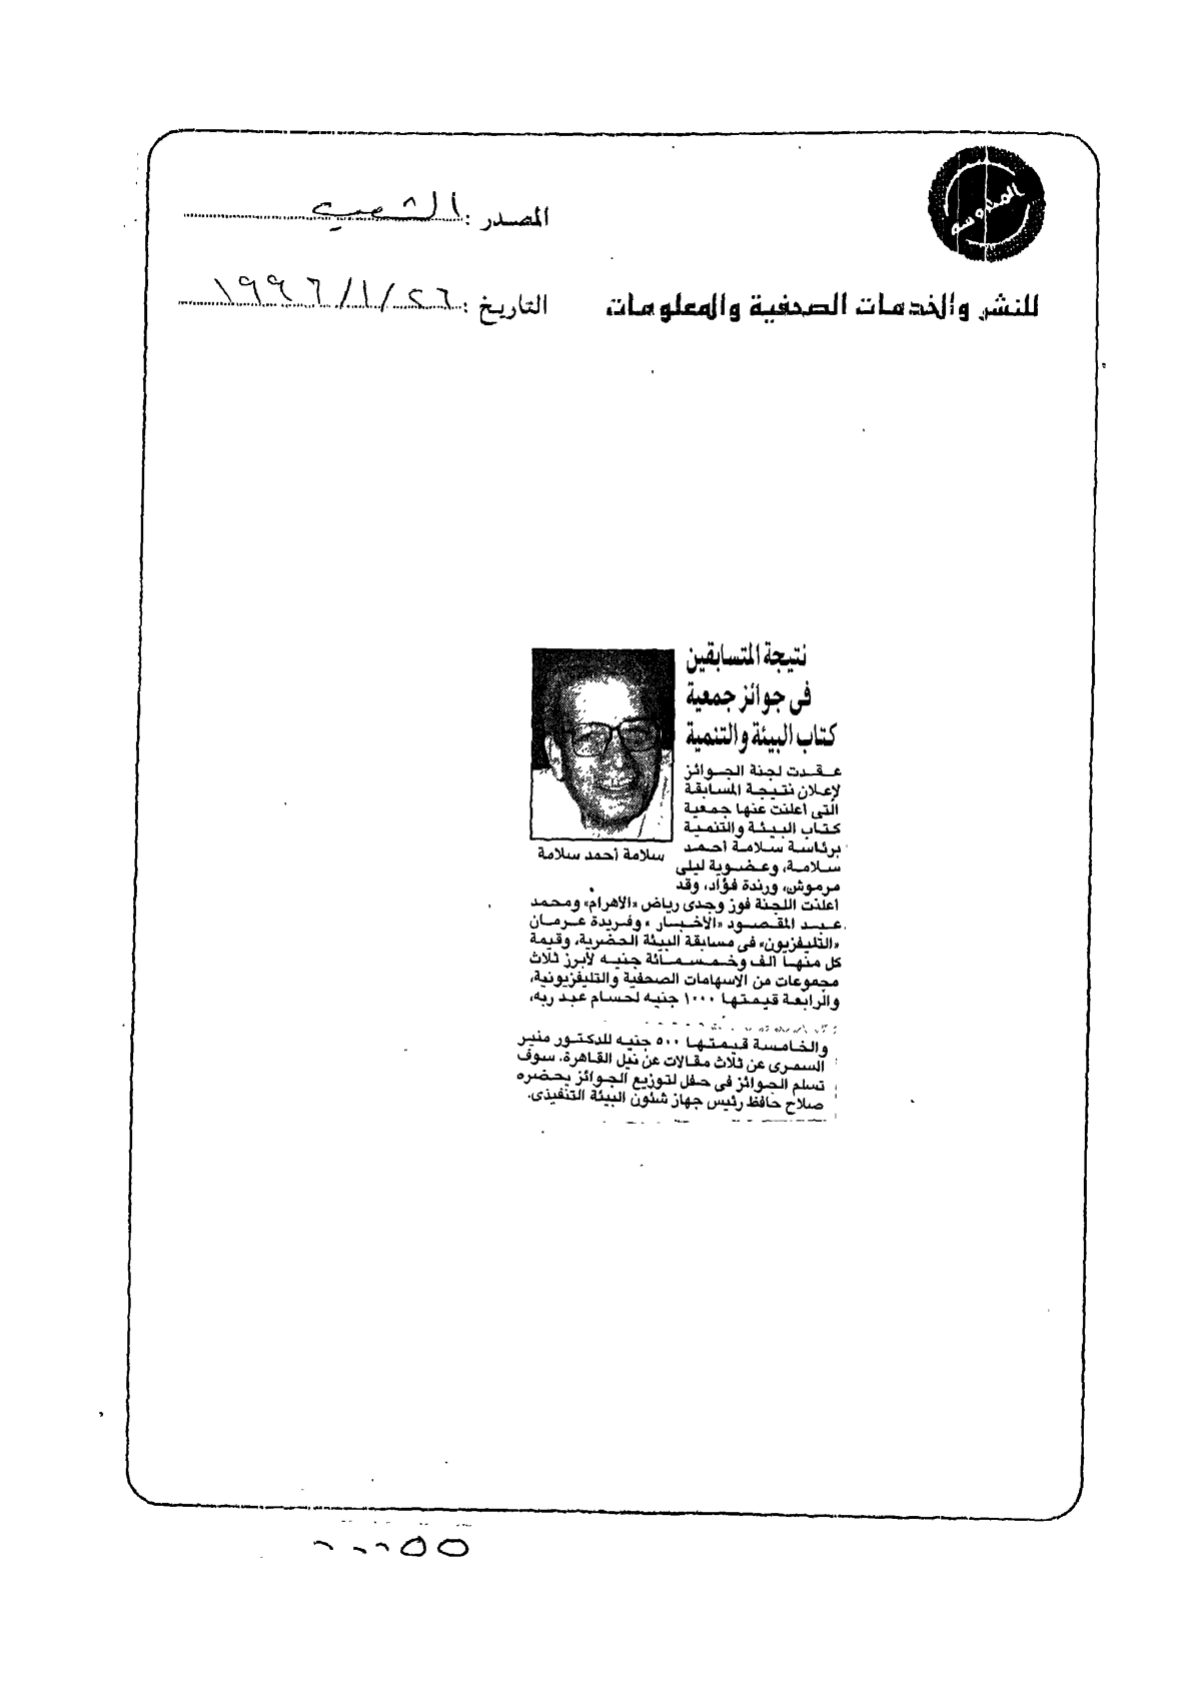 المحروسة
المصدر : الشعب
للنشر والخدمات الصحفية والمعلومات
التاريخ : ٢٦/١/١٩٩٦
نتيجة المتسابقين
فى جوائز جمعية
كتاب البيئة والتنمية
سلامة أحمد سلامة
عقدت لجنة الجوائز
لإعلان نتيجة المسابقة
التى أعلنت عنها جمعية
كتاب البيئة والتنمية
برئاسة سلامة أحمد
سلامة، وعضوية ليلى
مرموش، ورندة فؤاد، وقد
أعلنت اللجنة فوز وجدى رياض «الأهرام» ومحمد
عبد المقصود «الأخبار» وفريدة عرمان
«التليفزيون» فى مسابقة البيئة الحضرية، وقيمة
كل منها ألف وخمسمائة جنيه لأبرز ثلاث
مجموعات من الاسهامات الصحفية والتليفزيونية،
والرابعة قيمتها ١٠٠٠ جنيه لحسام عبد ربه،
والخامسة قيمتها ٥٠٠ جنيه للدكتور منير
السمرى عن ثلاث مقالات عن نيل القاهرة. سوف
تسلم الجوائز فى حفل لتوزيع الجوائز يحضره
صلاح حافظ رئيس جهاز شئون البيئة التنفيذى.